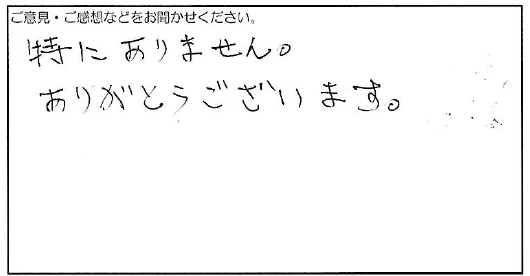 ご意見・ご感想などをお聞かせください。
特にありません。
ありがとうございます。